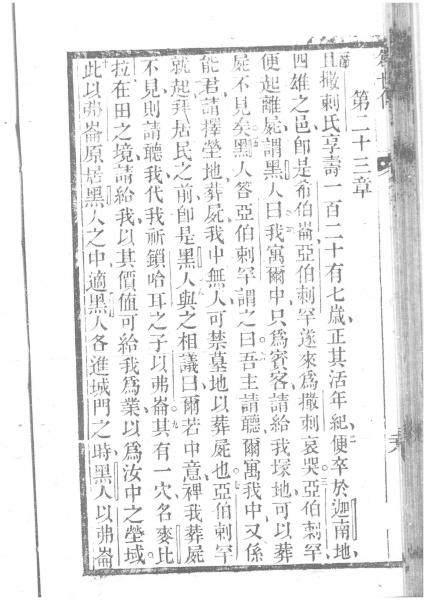 第二十三章
且撒剌氏享壽一百二十有七歲正其活年紀便卒於迦南地
四雄之邑卽是希伯崙亞伯剌罕遂來爲撒剌哀哭亞伯剌罕
便起離屍謂黑人曰我寓爾中只爲賓客請給我塚地可以葬
屍不見矣黑人答亞伯剌罕謂之曰吾主請聽爾寓我中又係
能君請擇塋地葬屍我中無人可禁墓地以葬屍也亞伯剌罕
就起拜居民之前卽是黑人與之相議曰爾若中意裨我葬屍
不見則請聽我代我祈鎖哈耳之子以弗崙其有一穴名麥比
拉在田之境請給我以其價值可給我爲業以爲汝中之塋域
此以弗崙原居黑人之中適黑人各進城門之時黑人以弗崙